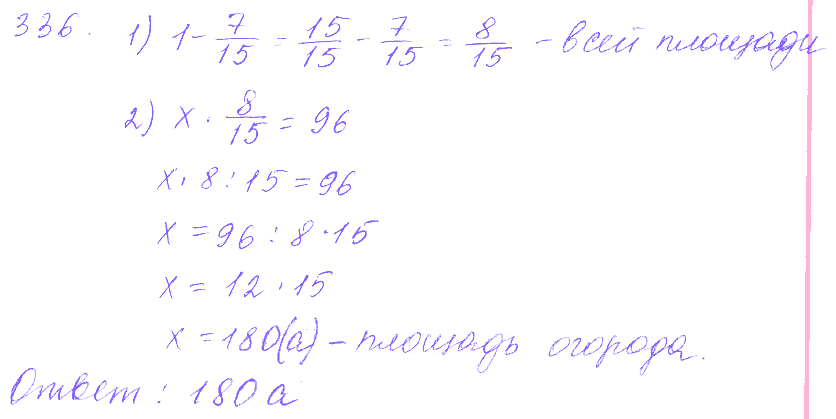 336. 1) 1 - 7/15 = 15/15 - 7/15 = 8/15 - всей площади
2) x · 8/15 = 96
x · 8 : 15 = 96
x = 96 : 8 · 15
x = 12 · 15
x = 180(а) - площадь огорода.
Ответ: 180 а